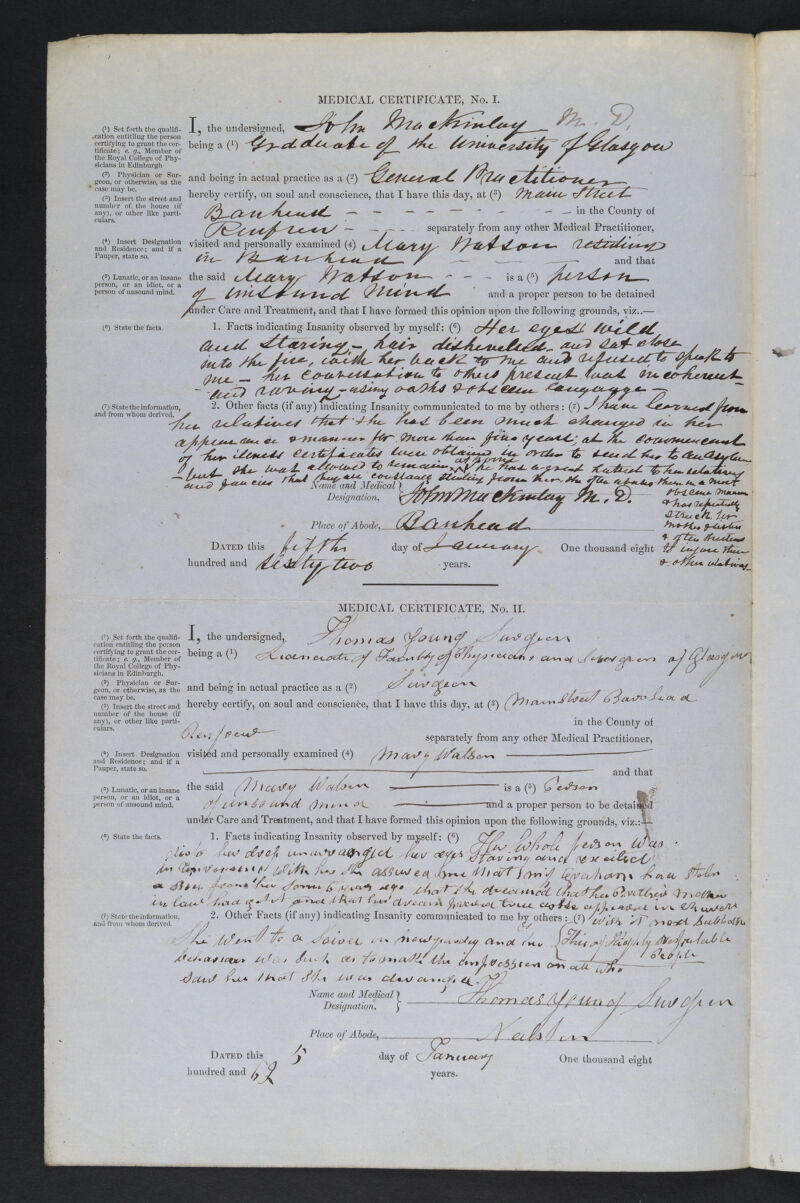 MEDICAL CERTIFICATE, No. I.
(1) Set forth the qualifi-
cation entitling the person
certifying to grant the cer-
tificate; e. g., Member of
the Royal College of Phy-
sicians in Edinburgh
(2) Physician or Sur-
geon, or otherwise, as the
case may be.
(3) Insert the street and
number of the house (if
any), or other like parti-
culars.
(4) Insert Designation
and Residence; and if a
Pauper, state so.
(5) Lunatic, or an insane
person, or an idiot, or a
person of unsound mind.
(6) State the facts.
(7) State the information,
and from whom derived.
I, the undersigned, John MacKinlay M. D.
being a (1) Graduate of the University of Glasgow
and being in actual practice as a (2) General Practitioner
hereby certify, on soul and conscience, that I have this day, at (3) Main Street
Barrhead - - - - - - - - - in the County of
Renfrew - - - - separately from any other Medical Practitioner,
visited and personally examined (4) Mary Watson residing
in Barrhead - - - - and that
the said Mary Watson - - - is a (5) person
of unsound mind and a proper person to be detained
under Care and Treatment, and that I have formed this opinion upon the following grounds, viz..—
1. Facts indicating Insanity observed by myself: (6) Her eyes wild
and staring - hair dishevelled - and sat close
into the fire, with her back to me and refused to speak to
me - her conversation to others present was incoherent
- and raving - using oaths & obscene language -
2. Other facts (if any) indicating Insanity communicated to me by others: (7) I have learned from
her relatives that she has been much changed in her
appearance & manner for more than five years; at the commencement
of her illness certificates were obtained in order to send her to an Asylum
- but she was allowed to remain at home
she has a great hatred to her relatives
and fancies that they are constantly stealing from her. She often abuses them in a most
obscene manner
& has repeatedly
struck her
mother & sister
& often threatens
to injure them
& other relatives.
Name and Medical
Designation. John MacKinlay M. D.
Place of Abode, Barrhead
DATED this fifth day of January One thousand eight
hundred and sixty two years.
MEDICAL CERTIFICATE, No. II.
(1) Set forth the qualifi-
cation entitling the person
certifying to grant the cer-
tificate; e. g., Member of
the Royal College of Phy-
sicians in Edinburgh.
(2) Physician or Sur-
geon, or otherwise, as the
case may be.
(3) Insert the street and
number of the house (if
any), or other like parti-
culars.
(4) Insert Designation
and Residence; and if a
Pauper, state so.
(5) Lunatic, or an insane
person, or an idiot, or a
person of unsound mind.
(6) State the facts.
(7) State the information,
and from whom derived.
I, the undersigned, Thomas Young Surgeon
being a (1) Licenciate of Faculty of Physicians and Surgeon of Glasgow
and being in actual practice as a (2) Surgeon
hereby certify, on soul and conscience, that I have this day, at (3) Main Street Barrhead
in the County of
Renfrew separately from any other Medical Practitioner,
visited and personally examined (4) Mary Watson
and that
the said Mary Watson is a (5) Person
of unsound mind and a proper person to be detained
under Care and Treatment, and that I have formed this opinion upon the following grounds, viz.:—
1. Facts indicating Insanity observed by myself: (6) Her whole person was
her dress unarranged her eyes staring and excited
in conversing with her she assured me that Graham had stolen
a from her some 6 years ago that she dreamed that her Brothers mother
in law had got it and that her dream proved true as she appeared in church
with it next Sabbath
2. Other Facts (if any) indicating Insanity communicated to me by others: (7)
This of highly respectable
People
She went to a in and her
behaviour was such as to make the impression on all who
saw her that she was deranged.
Name and Medical
Designation. Thomas Young Surgeon
Place of Abode, Neilston
DATED this 5 day of January One thousand eight
hundred and 62 years.